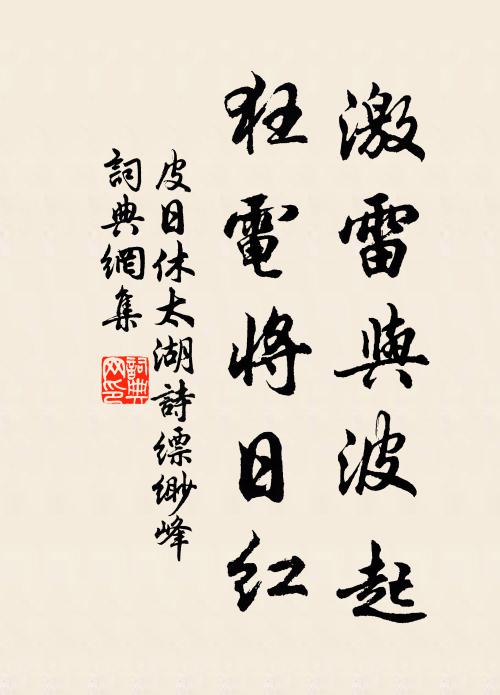 激雷與波起
狂電將日紅
皮日休太湖詩縹緲峰
詞典網集
詞典
网印